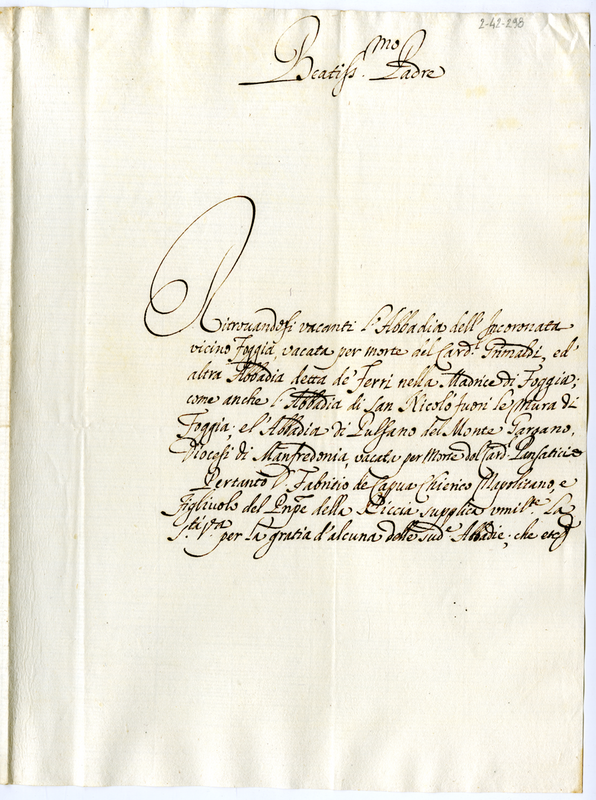 2-42-298
Beatiss.mo Padre
Ritrovandosi vacanti l'Abbadia dell'Incoronata
vicino Foggia, vacata per morte del Card. Grimaldi, ed
altra Abbadia detta de Ferri nella Madrice di Foggia;
come anche l'Abbadia di San Nicolò fuori le mura di
Foggia, e l'Abbadia di Pulsano del Monte Gargano,
Diocesi di Manfredonia, vacata per morte del Card. Panfatici
Pertanto D. Fabritio de Capua Chierico Napolitano, e
figlivolo del Pnpe della Riccia supplica umil.te La
S.tà V.ra per la gratia d'alcuna delle sud.e Abbadie; che etc